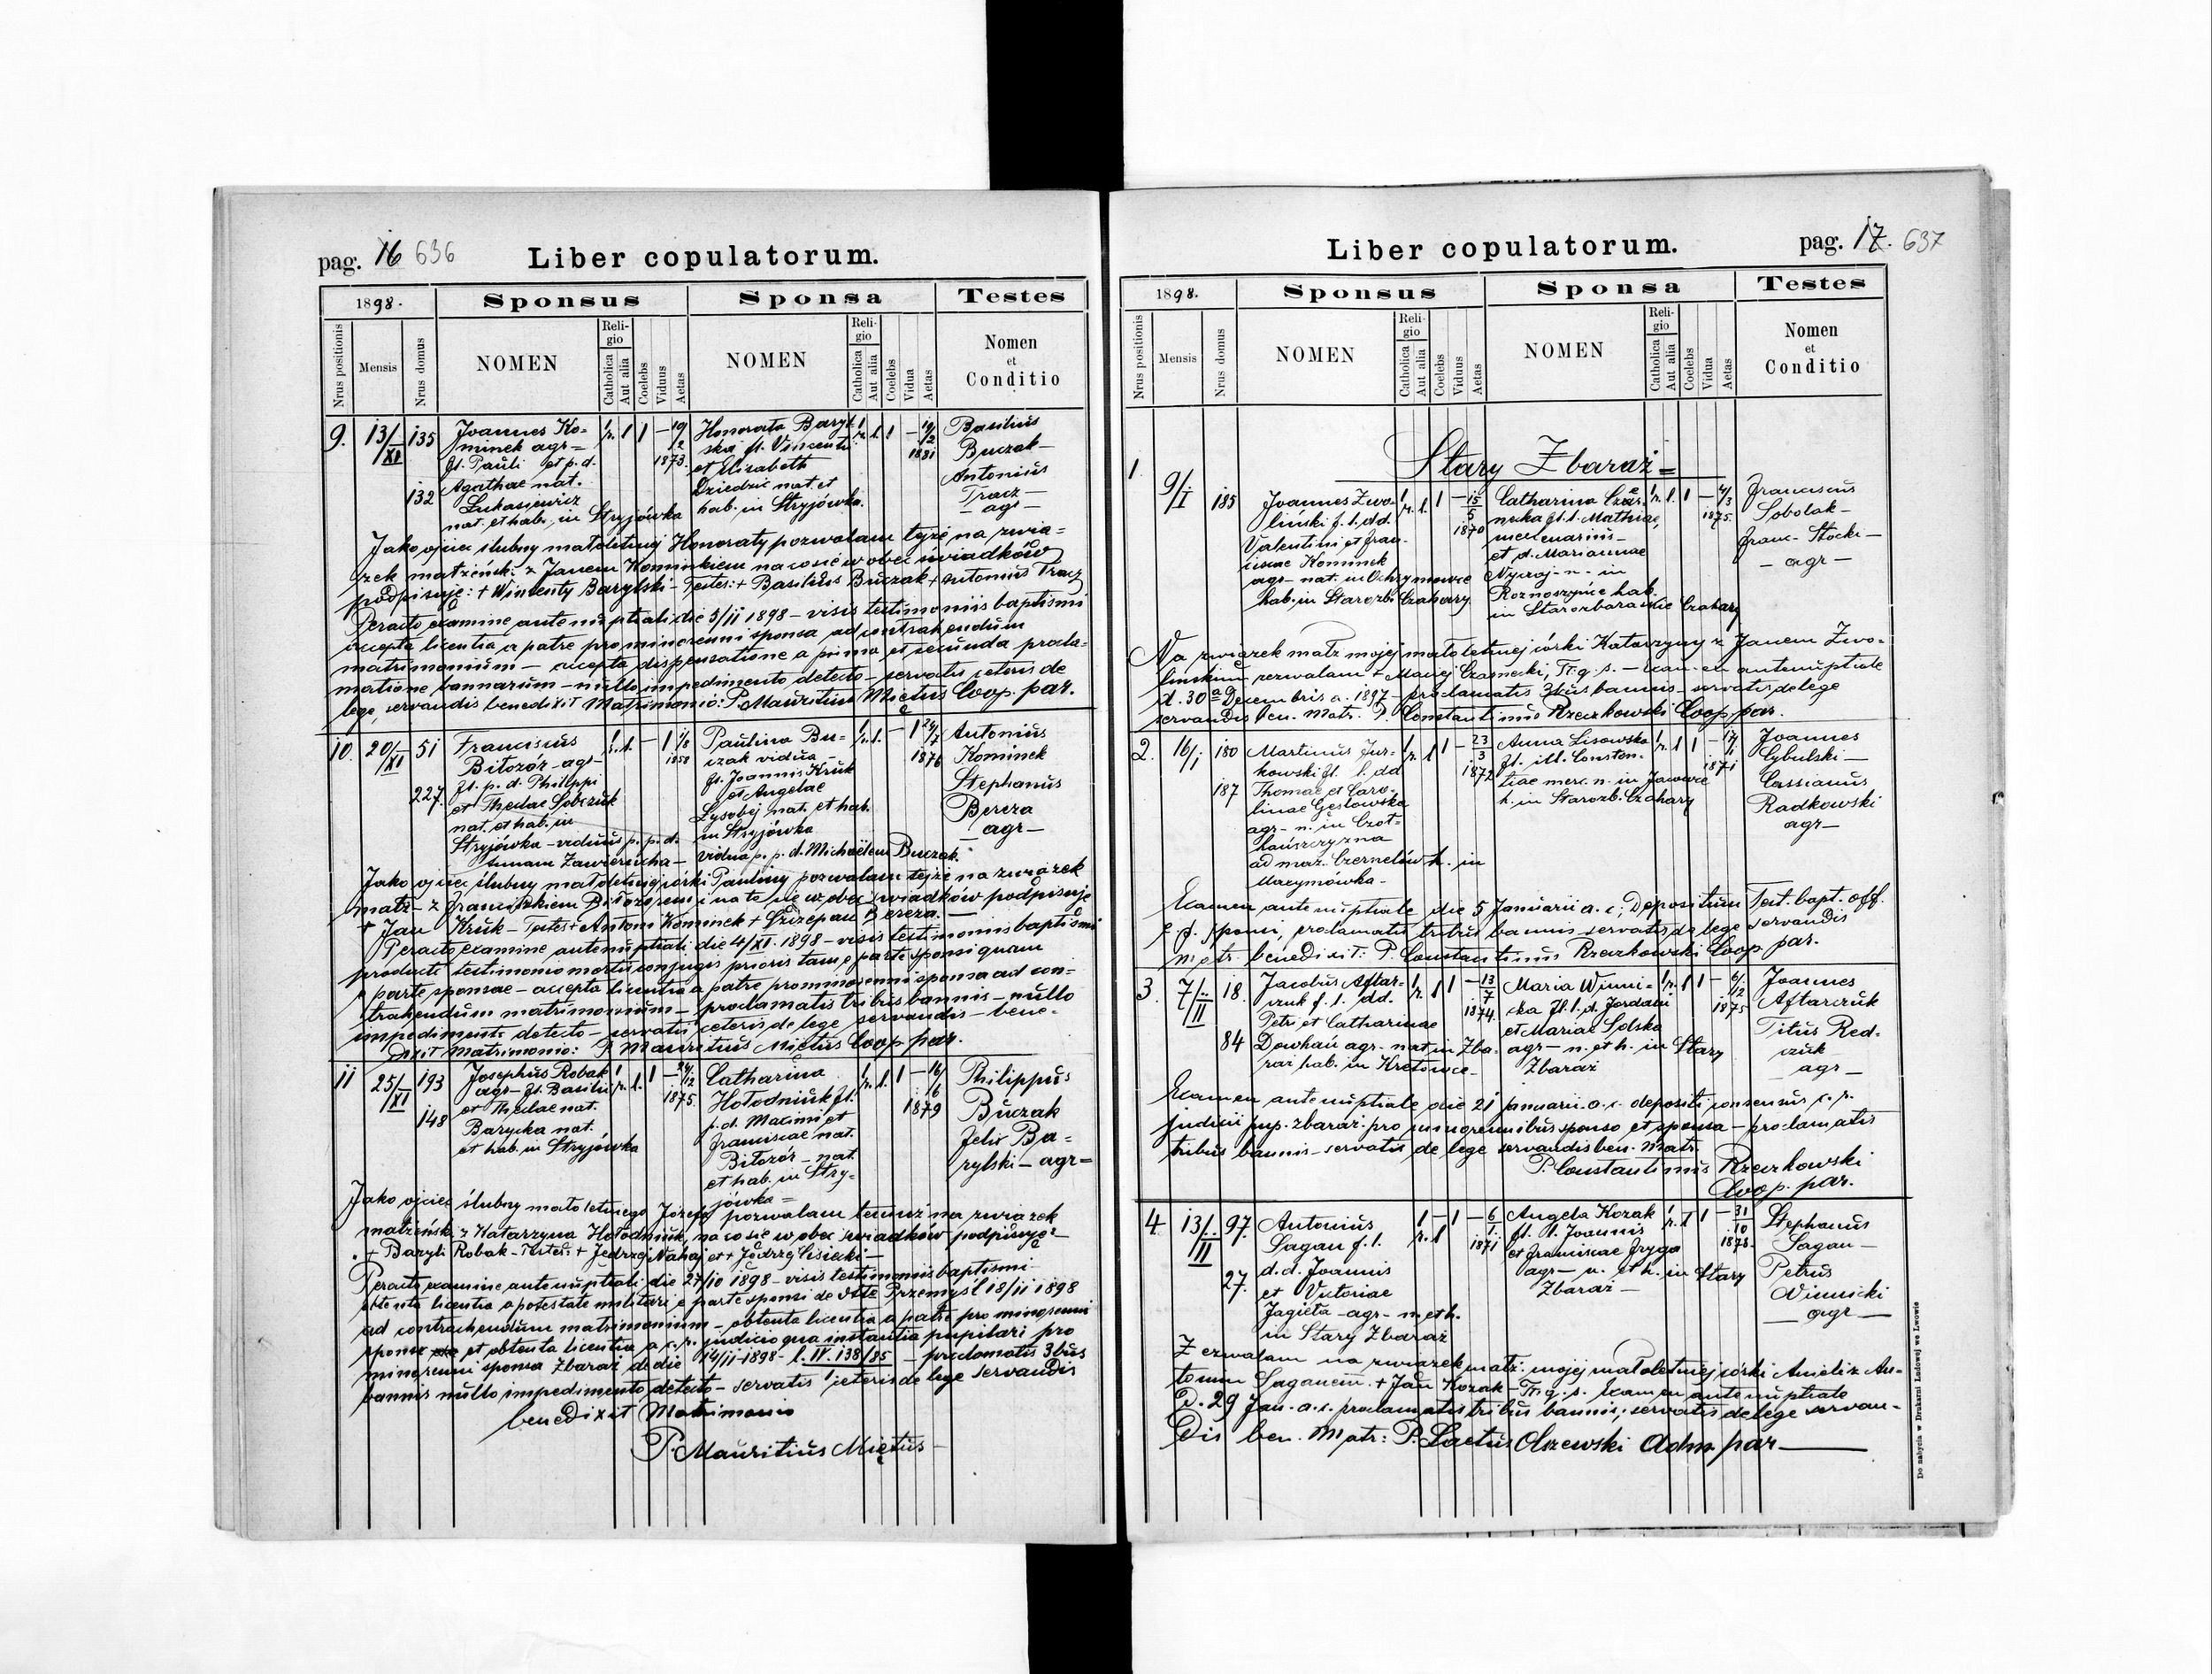 pag. 16 636
Liber copulatorum.
1898.
Sponsus
Sponsa
Testes
Nrus positionis
Mensis
Nrus domus
NOMEN
Religio
Catholica
Aut alia
Coelebs
Viduus
Aetas
NOMEN
Religio
Catholica
Aut alia
Coelebs
Vidua
Aetas
Nomen
et
Conditio
9. 13/XI 135
132
Joannes Ko=
minek agr=
fl. Pauli et p.d.
Agathae nat.
Łukasiewicz
nat. et hab. in Stryjówka
19/2
1873.
Honorata Baryl=
ska fl. Vincentii
et Elisabeth
Dziedzic nat. et
hab. in Stryjówka.
19/2
1881
Basilius
Buczak—
Antonius
Tracz—
—agr—
Jako ojciec ślubny małoletniej Honoraty pozwalam tejże na zwią=
zek małżeński z Janem Kominkiem na co się w obec świadków
podpisuję: + Wincenty Barylski — Testes: + Basilius Buczak + Antonius Tracz
Peracto examine antenuptiali die 3/11 1898 — visis testimoniis baptismi
accepta licentia a patre pro minorenni sponsa ad contrahendum
matrimonium — accepta dispensatione a prima et secunda procla=
matione bannorum — nullo impedimento detecto — servatis ceteris de
lege, servandis benedixit Matrimonio: P. Mauritius Miętus Coop. par.
10. 20/XI 51
227.
Franciscus
Biłozór — agr—
fl. p. d. Philippi
et Theclae Sobczuk
nat. et hab. in
Stryjówka — viduus p. p. d.
Annam Zawierucha—
1858
Paulina Bu=
czak vidua—
fl. Joannis Kruk
et Angelae
Łysobej nat. et hab.
in Stryjówka
vidua p. p. d. Michaëlem Buczak.
24/7
1876
Antonius
Kominek
Stephanus
Bereza
—agr—
Jako ojciec ślubny małoletniej córki Pauliny pozwalam tejże na związek
małż— z Franciszkiem Biłozorem i na to się w obec świadków podpisuję
+ Jan Kruk — Testes + Antoni Kominek + Szczepan Bereza.—
Peracto examine antenuptiali die 4/XI. 1898 — visis testimoniis baptismi
producti testimonio mortis conjugis prioris tam e parte sponsi quam
e parte sponsae — accepta licentia a patre pro minorenni sponsa ad con=
trahendum matrimonium — proclamatis tribus bannis — nullo
impedimento detecto — servatis ceteris de lege servandis — bene=
dixit Matrimonio: P. Mauritius Miętus Coop. par.
11 25/XI 193
148
Josephus Robak
agr— fl. Basilii
et Theclae nat.
Barycka nat.
et hab. in Stryjówka
24/12
1875.
Catharina
Hołodniuk fl.
p. d. Maximi et
Franciscae nat.
Biłozór — nat.
et hab. in Stry=
jówka=
16/6
1879
Philippus
Buczak
Felix Ba=
rylski — agr=
Jako ojciec ślubny małoletniego Józefa pozwalam temuż na związek
małżeńsk. z Katarzyną Hołodniuk, na co się w obec świadków podpisuję:—
+ Bazyli Robak — Testes: + Jędrzej Nahaj et + Jędrzej Lisiecki—
Peracto examine antenuptiali die 27/10 1898 — visis testimoniis baptismi
obtenta licentia a potestate militari e parte sponsi de Przemyśl 18/11 1898
ad contrahendum matrimonium — obtenta licentia a patre pro minorenni
sponso et obtenta licentia a c. r. judicio qua instantia pupilari pro
minorenni sponsa Zbaraż de die 14/11 1898 l. IV. 138/85 — proclamatis 3bus
bannis nullo impedimento detecto — servatis ceteris de lege servandis
benedixit Matrimonio
P. Mauritius Miętus—
Liber copulatorum.
pag. 17. 637
1898.
Sponsus
Sponsa
Testes
Nrus positionis
Mensis
Nrus domus
NOMEN
Religio
Catholica
Aut alia
Coelebs
Viduus
Aetas
NOMEN
Religio
Catholica
Aut alia
Coelebs
Vidua
Aetas
Nomen
et
Conditio
Stary Zbaraż=
1. 9/I 185
Joannes Zwo=
liński f. l. dd.
Valentini et Fran=
ciscae Kominek
agr— nat. in Ochrymowce
hab. in Starozb. Czahary
15/5
1870
Catharina Czar=
necka fl. l. Mathiae,
mercenarius—
et d. Mariannae
n. in
Roznoszyńce hab.
in Starozbaraskie Czahary
4/3
1875.
Franciscus
Sobolak—
Franc. Stocki—
—agr—
Na związek małż mojej małoletniej córki Katarzyny z Janem Zwo=
linskim zezwalam + Maciej Czarnecki, Tr. g. s. — Examen antenuptiale
d. 30a Decembris a. 1897 — proclamatis 3bus bannis — servatis de lege
servandis ben. Matr. P. Constantinus Rzeczkowski Coop. par.
2. 16/I 180
187
Martinus Jur=
kowski fl. l. dd
Thomae et Caro=
linae Gęslowska
agr— n. in Czoł=
hańszczyzna
ad maz. Czernelów h. in
Mazymówka—
23/3
1872
Anna Lisowska
fl. ill. Constan=
tiae merc. n. in Jacowce
h. in Starozb. Czahary
17/1
1871
Joannes
Cybulski—
Cassianus
Radkowski
agr—
Examen antenuptiale die 5 Januarii a. c; Depositum Test. bapt. off.
sponsi, proclamatis tribus bannis servatis de lege servandis
matr. benedixit: P. Constantinus Rzeczkowski Coop. par.
3. 7/II 18.
84
Jacobus Aftar=
czuk f. l. dd.
Petri et Catharinae
Dowhań agr. nat in Zba=
raż hab. in Kretowce—
13/7
1874.
Maria Winni=
cka fl. l. d. Jordani
et Mariae Solska
agr— n. et h. in Stary
Zbaraż
6/12
1875
Joannes
Aftarczuk
Titus Red=
czuk
agr—
Examen antenuptiale die 21 januarii a. c. depositi consensus c. r.
judicii pup. Zbaraż. pro minorennibus sponso et sponsa — proclamatis
tribus bannis — servatis de lege servandis ben. Matr.
P. Constantinus Rzeczkowski
Coop. par.
4. 13/II 97.
27.
Antonius
Sagan f. l.
d.d. Joannis
et Victoriae
Jagieła — agr— n. et h.
in Stary Zbaraż
6/1
1871
Angela Kozak
fl. l. Joannis
et Franciscae Fryga
agr— n. et h. in Stary
Zbaraż—
31/10
1878.
Stephanus
Sagan—
Petrus
Winnicki
—agr—
Zezwalam na związek małż: mojej małoletniej córki Anieli z An=
tonim Saganem. + Jan Kozak — Tr. g. s. Examen antenuptiale
d. 29 Jan. a. c. proclamatis tribus bannis, servatis de lege servan=
dis ben. Matr: P. Laetus Olszewski Adm. par—
Do nabycia w Drukarni Ludowej we Lwowie